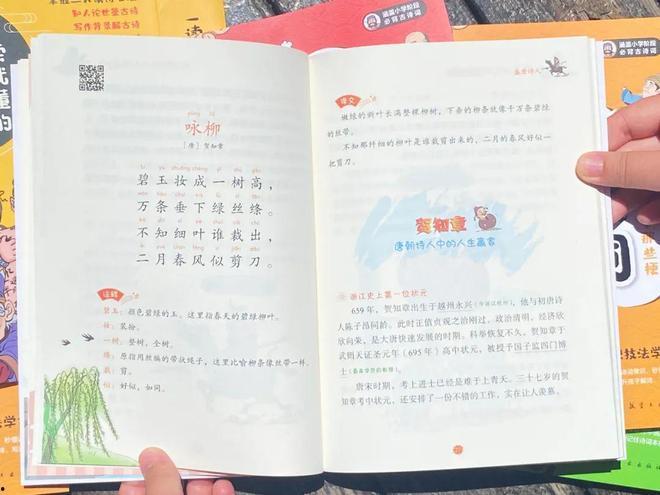 知人论世蒙古诗
写作背景解古诗
一读
涵盖小学阶段
必背古诗词
涵盖小学阶段
必背古诗词
懂
的
yǒng liǔ
咏柳
[唐] 贺知章
碧玉妆成一树高，
万条垂下绿丝绦。
不知细叶谁裁出，
二月春风似剪刀。
注释
碧玉：颜色碧绿的玉。这里指春天的碧绿柳叶。
妆：装扮。
一树：整树，全树。
绦：原指用丝编的带状绳子，这里比喻柳条像丝带一样。
裁：剪。
似：好似，如同。
盛唐诗人
译文
嫩绿的新叶长满整棵柳树，下垂的柳条就像千万条碧绿
的丝带。
不知那纤细的柳叶是谁裁剪出来的，二月的春风好似一
把剪刀。
贺知章
唐朝诗人中的人生赢家
浙江史上第一位状元
659 年，贺知章出生于越州永兴（今浙江杭州），他与初唐诗
人陈子昂同龄。此时正值贞观之治刚过，政治清明，经济欣
欣向荣，是大唐快速发展的时期。科举恢复不久，贺知章于
武则天证圣元年（695 年）高中状元，被授予国子监四门博
士（最高学府的教师）。
唐宋时期，考上进士已经是难于上青天。三十七岁的贺
知章考中状元，还安排了一份不错的工作，实在让人羡慕。
77
那
些
梗
词
技法学
法学